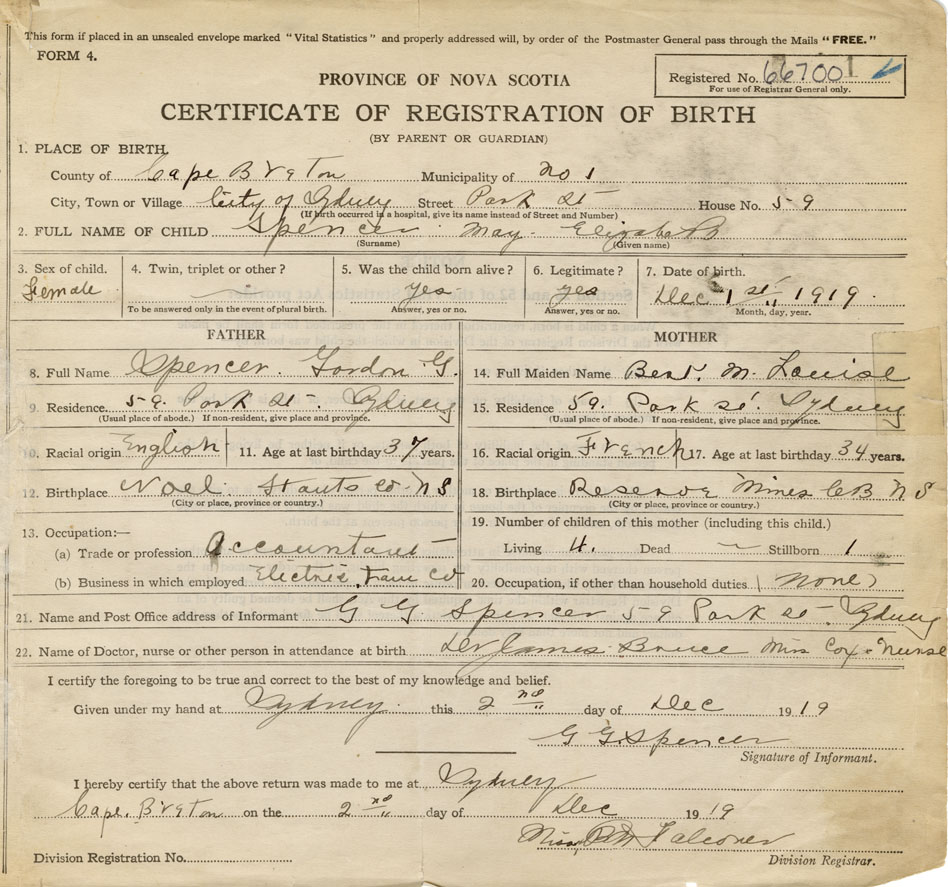 This form if placed in an unsealed envelope marked "Vital Statistics" and properly addressed will, by order of the Postmaster General pass through the Mails "FREE."
FORM 4.
PROVINCE OF NOVA SCOTIA
Registered No. 66700
For use of Registrar General only.
CERTIFICATE OF REGISTRATION OF BIRTH
(BY PARENT OR GUARDIAN)
1. PLACE OF BIRTH.
County of Cape Breton Municipality of No 1
City, Town or Village City of Sydney Street Park St House No. 59
(If birth occurred in a hospital, give its name instead of Street and Number)
2. FULL NAME OF CHILD Spencer May Elizabeth
(Surname) (Given name)
3. Sex of child. 4. Twin, triplet or other? 5. Was the child born alive? 6. Legitimate? 7. Date of birth.
Female yes yes Dec 1st 1919
To be answered only in the event of plural birth. Answer, yes or no. Answer, yes or no. Month, day, year.
FATHER MOTHER
8. Full Name Spencer. Gordon G. 14. Full Maiden Name Bent. M. Louise
9. Residence 59. Park St. Sydney 15. Residence 59. Park St. Sydney
(Usual place of abode.) If non-resident, give place and province. (Usual place of abode.) If non-resident, give place and province.
10. Racial origin English 11. Age at last birthday 37 years. 16. Racial origin French 17. Age at last birthday 34 years.
12. Birthplace Noel. Hants Co NS 18. Birthplace Reserve Mines CB NS
(City or place, province or country.) (City or place, province or country.)
13. Occupation:— 19. Number of children of this mother (including this child.)
(a) Trade or profession Accountant Living 4. Dead Stillborn 1
(b) Business in which employed Electric Tram Co 20. Occupation, if other than household duties (None)
21. Name and Post Office address of Informant G G Spencer 59 Park St. Sydney
22. Name of Doctor, nurse or other person in attendance at birth Dr James Bruce Miss Cox - Nurse
I certify the foregoing to be true and correct to the best of my knowledge and belief.
Given under my hand at Sydney. this 2nd day of Dec 1919
G G Spencer
Signature of Informant.
I hereby certify that the above return was made to me at Sydney
Cape Breton on the 2nd day of Dec 1919
Miss Falconer
Division Registration No. Division Registrar.